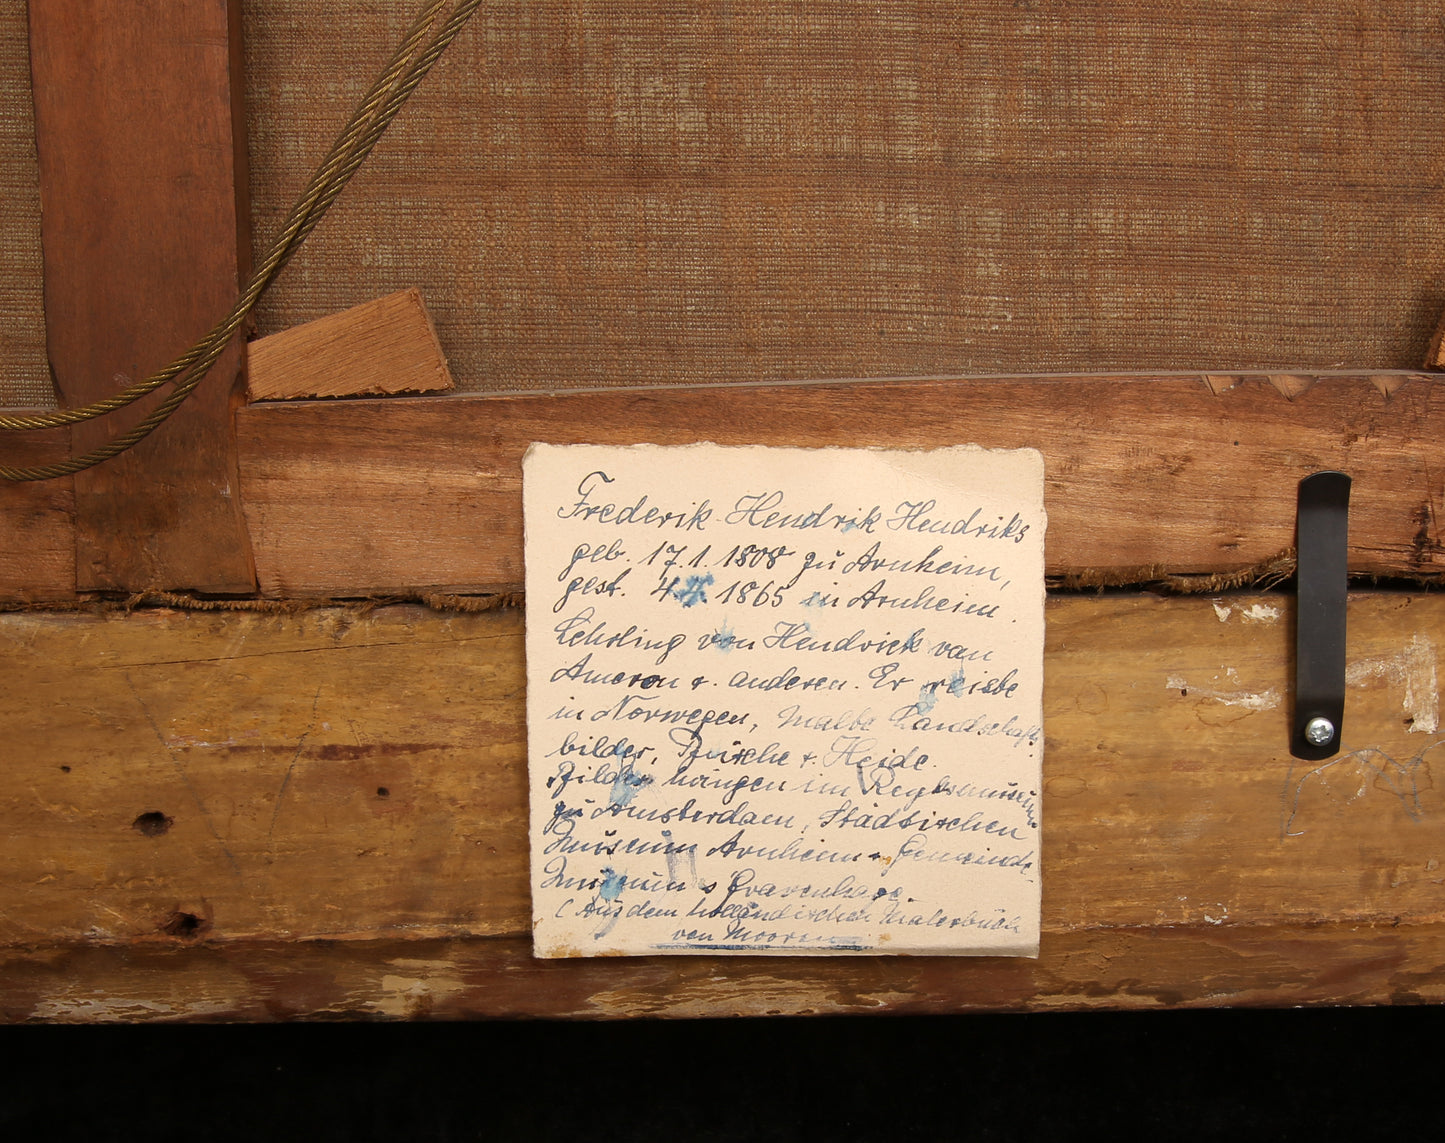 Frederik Hendrik Hendriks
geb. 17.1.1808 zu Arnheim,
gest. 4.4. 1865 in Arnheim.
Lehrling von Hendrick van
Ameron u. anderen. Er reiste
in Norwegen, malte Landschaft
bilder, Büsche u. Heide.
Bilder hängen im Reyksmuseum
zu Amsterdam, Städtischen
Museum Arnheim u. Gemeinde
Museum s Gravenhage.
( Aus dem holländischen Malerbuch
von